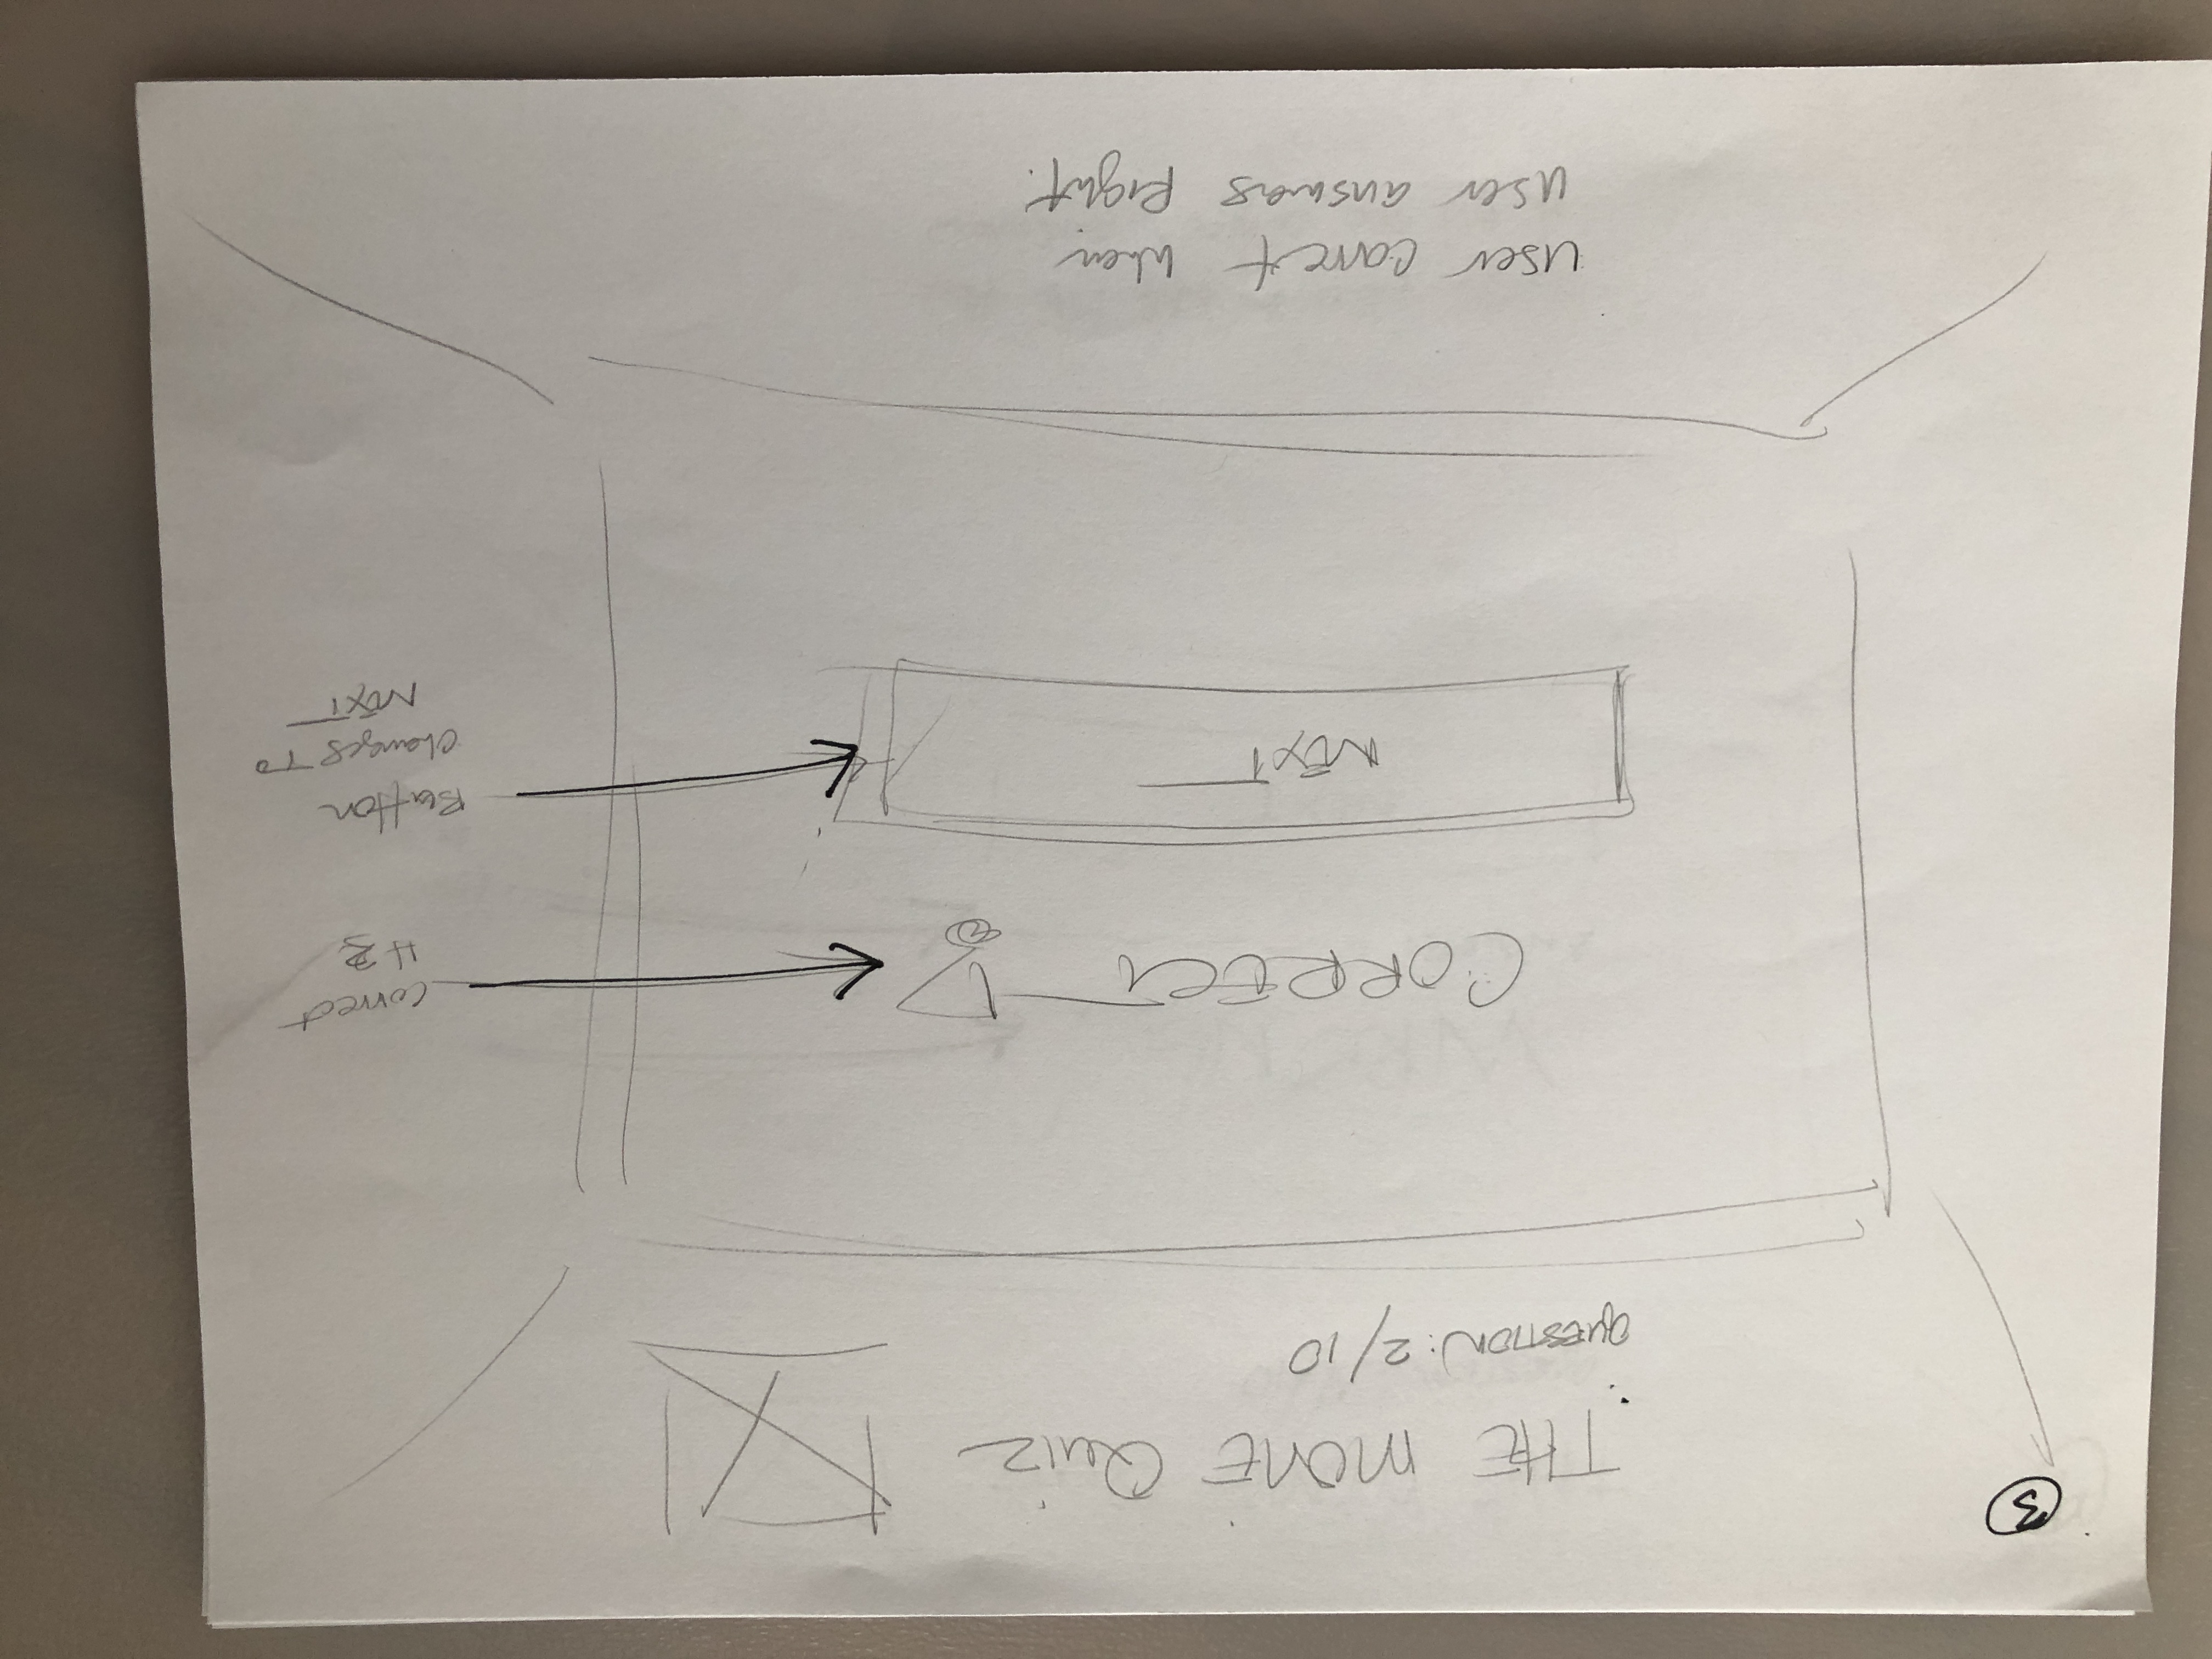 3
THE MONE Quiz
QUESTION: 2/10
CORRECT!
correct
H2
NEXT
Button
changes TO
NEXT
user correct when
user answers Right.